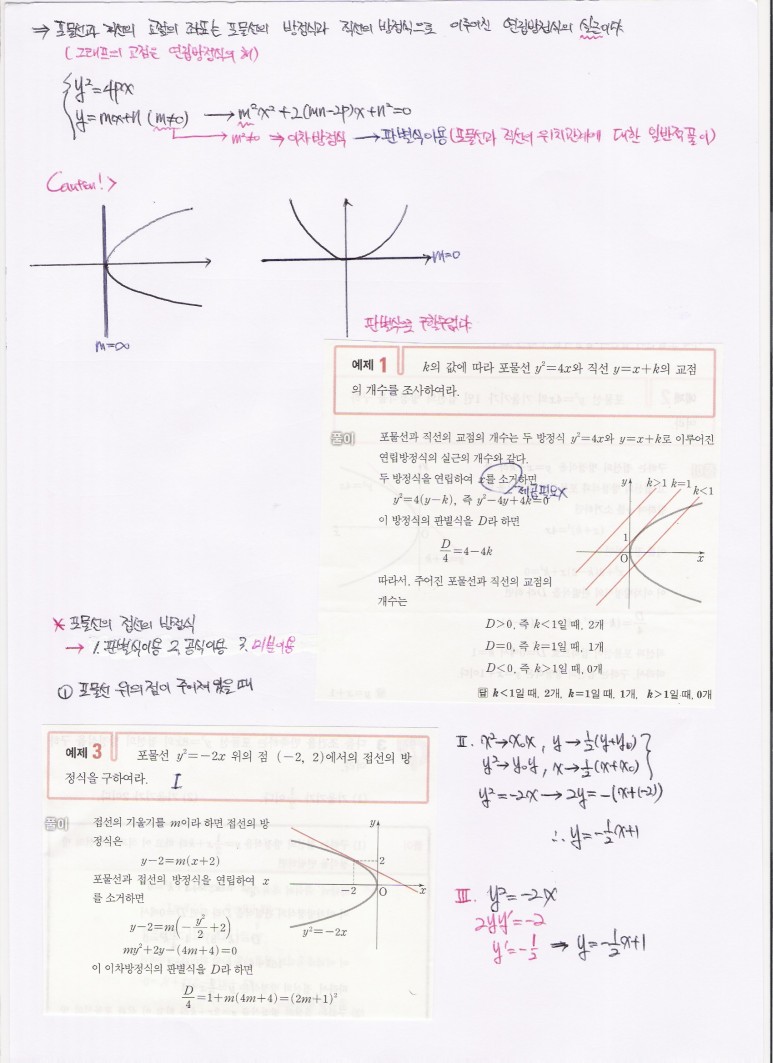 ⇒ 포물선과 직선의 교점의 좌표는 포물선의 방정식과 직선의 방정식으로 이루어진 연립방정식의 실근이다
(그래프의 교점은 연립방정식의 해)
y²=4px
y=mx+n (m≠0) → m²x²+2(mn-2p)x+n²=0
→ m²≠0 ⇒ 이차방정식 → 판별식이용 (포물선과 직선의 위치관계에 대한 일반적 풀이)
Caution!>
m=0
m=∞
판별식으로 구할수없다
예제 1 k의 값에 따라 포물선 y²=4x와 직선 y=x+k의 교점
의 개수를 조사하여라.
풀이 포물선과 직선의 교점의 개수는 두 방정식 y²=4x와 y=x+k로 이루어진
연립방정식의 실근의 개수와 같다.
두 방정식을 연립하여 x를 소거하면
→제곱필요X
y²=4(y-k), 즉 y²-4y+4k=0
이 방정식의 판별식을 D라 하면
D/4=4-4k
따라서, 주어진 포물선과 직선의 교점의
개수는
y k>1 k=1 k<1
1
O x
D>0, 즉 k<1일 때, 2개
D=0, 즉 k=1일 때, 1개
D<0, 즉 k>1일 때, 0개
답 k<1일 때, 2개, k=1일 때, 1개, k>1일 때, 0개
* 포물선의 접선의 방정식
→ 1. 판별식이용 2. 공식이용 3. 미분이용
① 포물선 위의 점이 주어져 있을 때
예제 3 포물선 y²=-2x 위의 점 (-2, 2)에서의 접선의 방
정식을 구하여라. I
풀이 접선의 기울기를 m이라 하면 접선의 방
정식은
y-2=m(x+2)
포물선과 접선의 방정식을 연립하여 x
를 소거하면
y-2=m(-y²/2+2)
my²+2y-(4m+4)=0
이 이차방정식의 판별식을 D라 하면
D/4=1+m(4m+4)=(2m+1)²
y
2
-2 O x
y²=-2x
II. x²→x₀x, y→½(y+y₀)
y²→y₀y, x→½(x+x₀)
y²=-2x → 2y=-(x+(-2))
∴ y=-½x+1
III. y²=-2x
2yy'=-2
y'=-½ ⇒ y=-½x+1